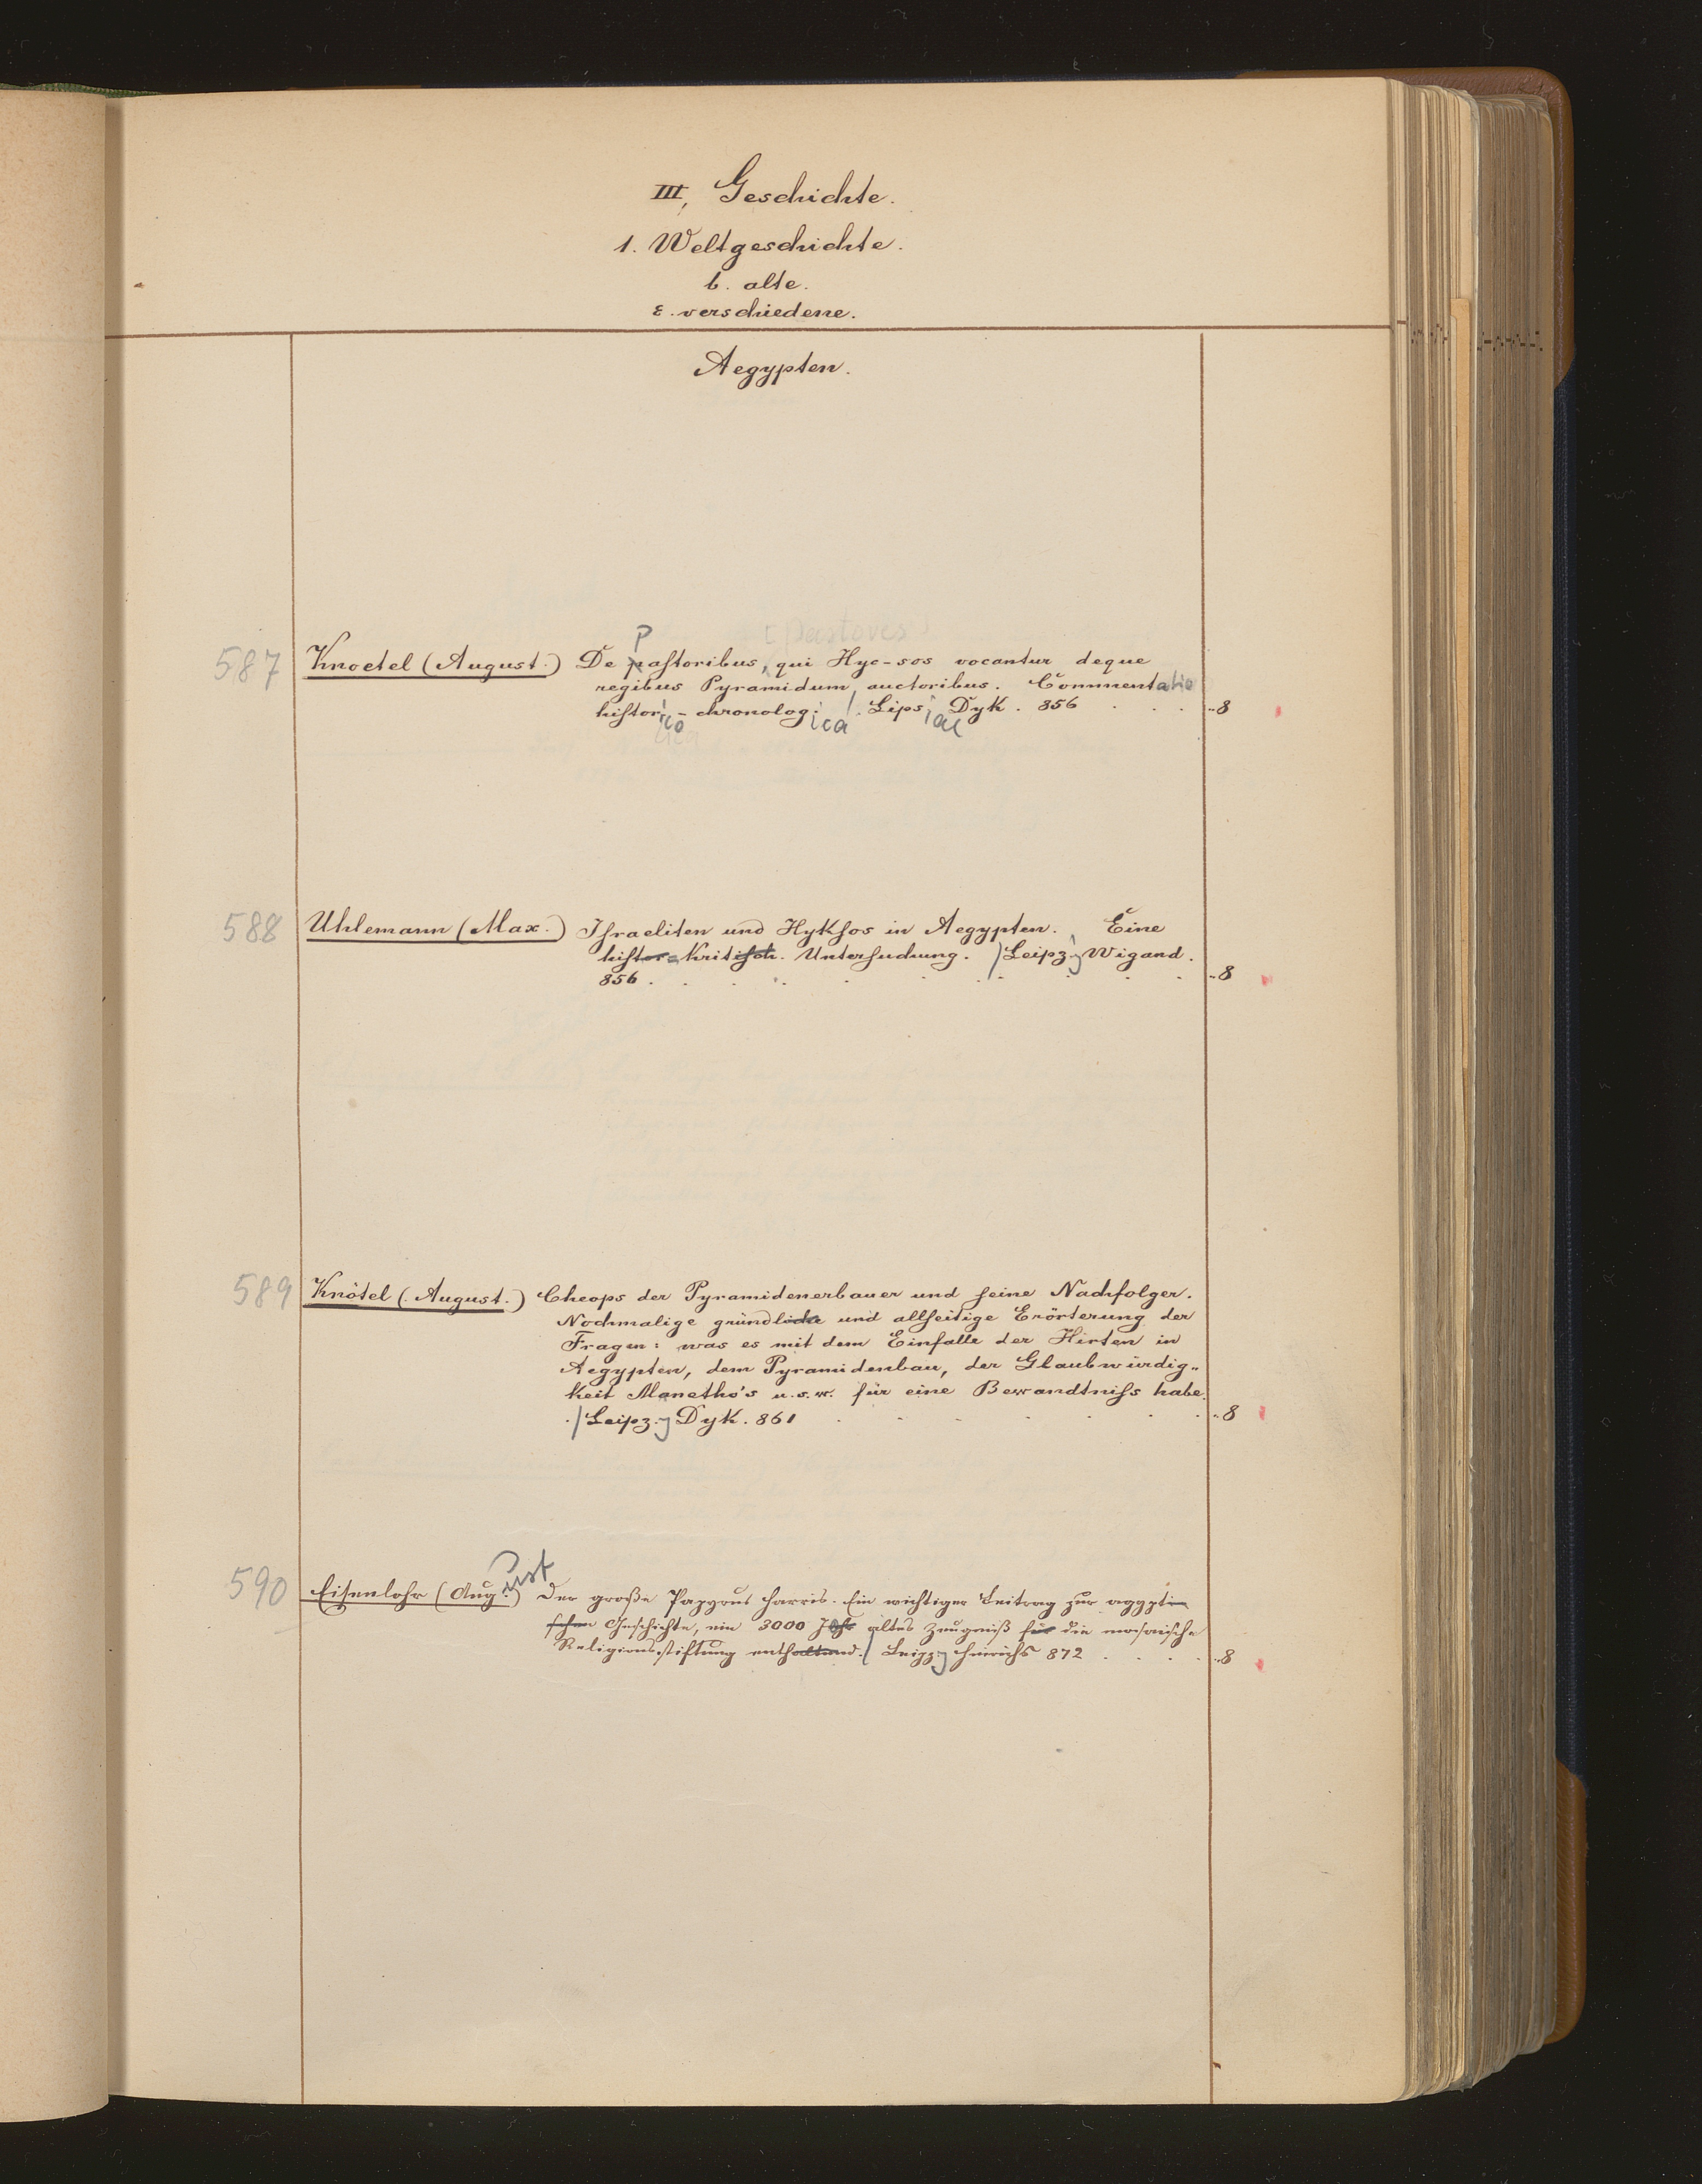 III, Geschichte.
1. Weltgeschichte.
b. alte.
ε. verschiedene.
Aegypten.
P [Pastores]
587 Knoetel (August.) De pastoribus, qui Hyc-sos vocantur deque
regibus Pyramidum auctoribus. Commentatio
histor. - chronolog. Lips. Dyk. 856 . . . ..8
ico ica iae
588 Uhlemann (Max.) Israeliten und Hyksos in Aegypten. Eine
histor=kritisch. Untersuchung. Leipz. Wigand.
856 . . . . . . . . . ..8
589 Knötel (August.) Cheops der Pyramidenerbauer und seine Nachfolger.
Nochmalige gründliche und allseitige Erörterung der
Fragen: was es mit dem Einfalle der Hirten in
Aegypten, dem Pyramidenbau, der Glaubwürdig„
keit Manetho's u.s.w. für eine Bewandtniss habe.
Leipz. Dyk. 861 . . . . . . ..8
ust
590 Eisenlohr (Aug.) Der große Papyrus Harris. Ein wichtiger Beitrag zur aegypti
schen Geschichte, ein 3000 Jahr altes Zeugniß für die mosaische
Religionsstiftung enthaltend. Leipz. Hinrichs 872 . . . . ..8